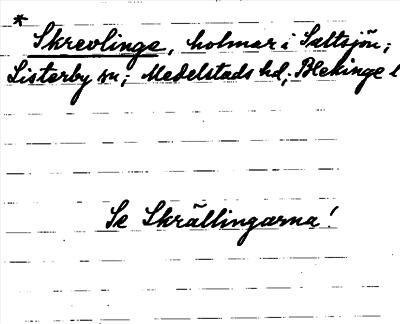 * Skrevlinge, holmar i Saltsjön;
Listerby sn; Medelstads hd; Blekinge l
Se Skrällingarna!